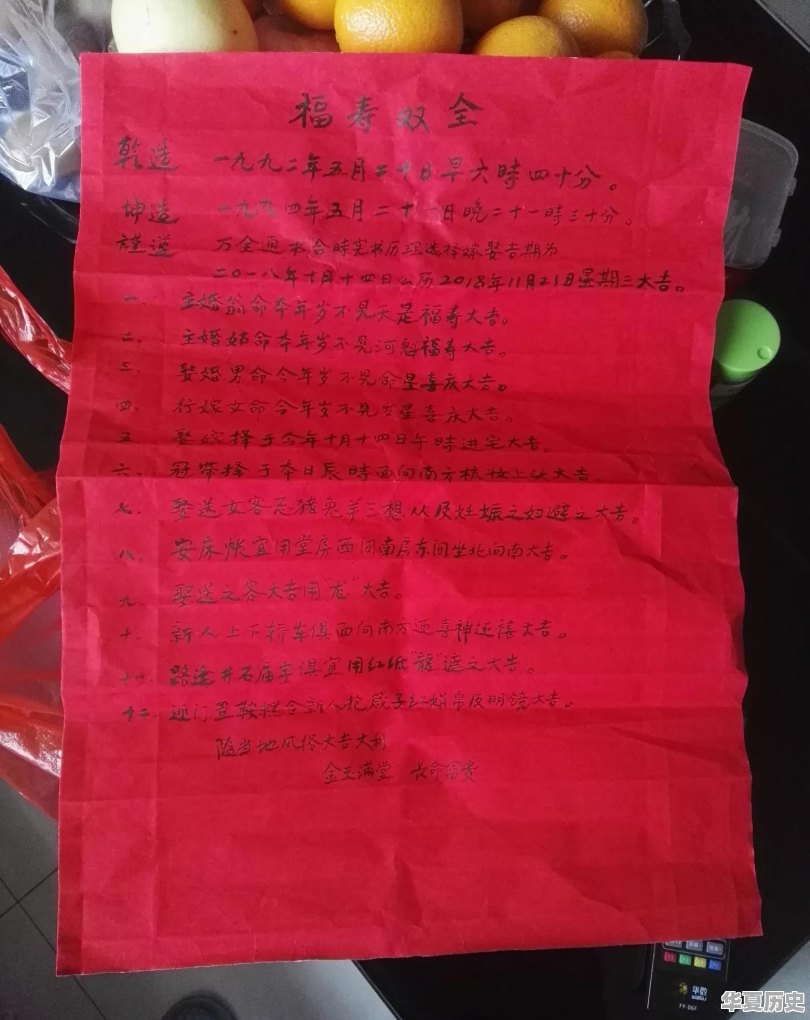 福寿双全
乾造 一九九二年五月二十日早六時四十分。
坤造 一九九四年五月二十一日晚二十一時三十分。
謹遵 万全通书合時宪书历理选择嫁娶吉期为
二〇一八年十月十四日公历2018年11月21日星期三大吉。
一. 主婚翁命本年岁不見天是福寿大吉。
二. 主婚姑命本年岁不見河魁福寿大吉。
三. 娶婚男命今年岁不見命星喜庆大吉。
四. 行嫁女命今年岁不見岁星喜庆大吉。
五. 娶嫁择于今年十月十四日午時进宅大吉。
六. 冠带择于本日辰時面向南方梳妆上头大吉。
七. 娶送女客忌猪兔羊三相人及妊娠之妇避之大吉。
八. 安床帐宜用堂房西间南房东间坐北向南大吉。
九. 娶送之客大吉用"龙"大吉。
十. 新人上下轿车俱面向南方迎喜神迎禧大吉。
十一. 路途井石庙宇俱宜用红纸遮之大吉。
十二. 迎门置鞍糕合新人抱 子红绢帛及明镜大吉。
随当地风俗大吉大利
金玉满堂 长命富贵
华数
FY-06F
华夏历史